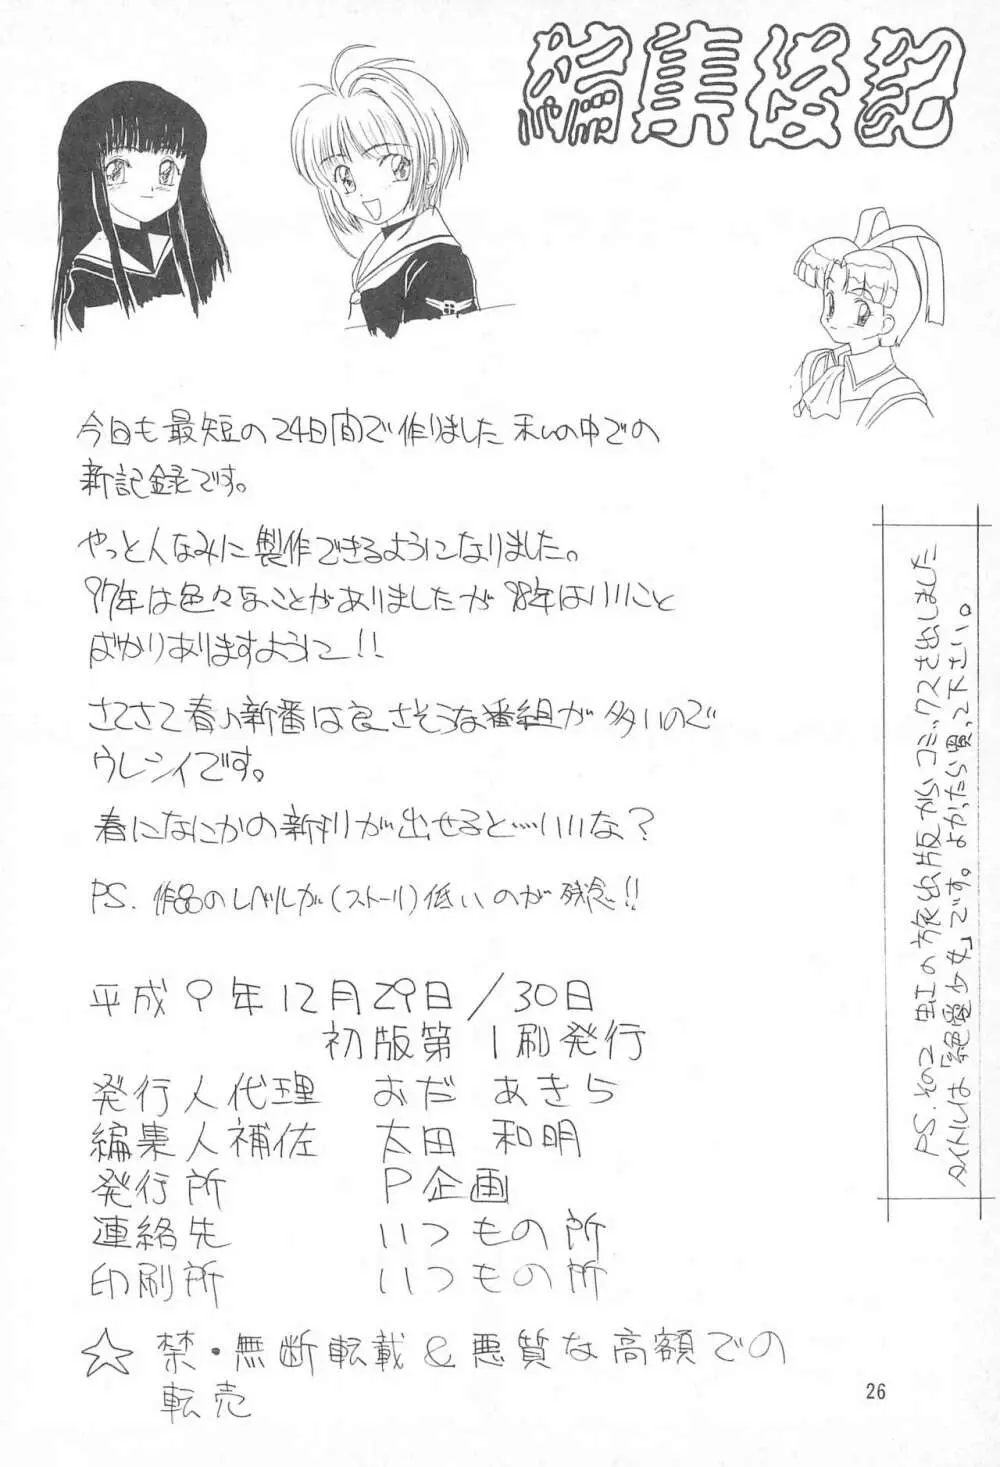 編集後記
今日も最短の24日間で作りました 私の中での
新記録です。
やっと人なみに製作できるようになりました。
97年は色々なことがありましたが98年はいいこと
ばかりありますように!!
さてさて春の新番は良さそうな番組が多いので
ウレシイです。
春になにかの新刊が出せると…いいな?
PS. 作品のレベルが(ストーリ)低いのが残念!!
平成9年12月29日/30日
初版第1刷発行
発行人代理 おだ あきら
編集人補佐 太田 和明
発行所 P企画
連絡先 いつもの所
印刷所 いつもの所
☆ 禁・無断転載&悪質な高額での
転売
PS. その2 虹の旅出版からコミックスを出しました
タイトルは「絶愛少女」です。よかったら買って下さい。
26